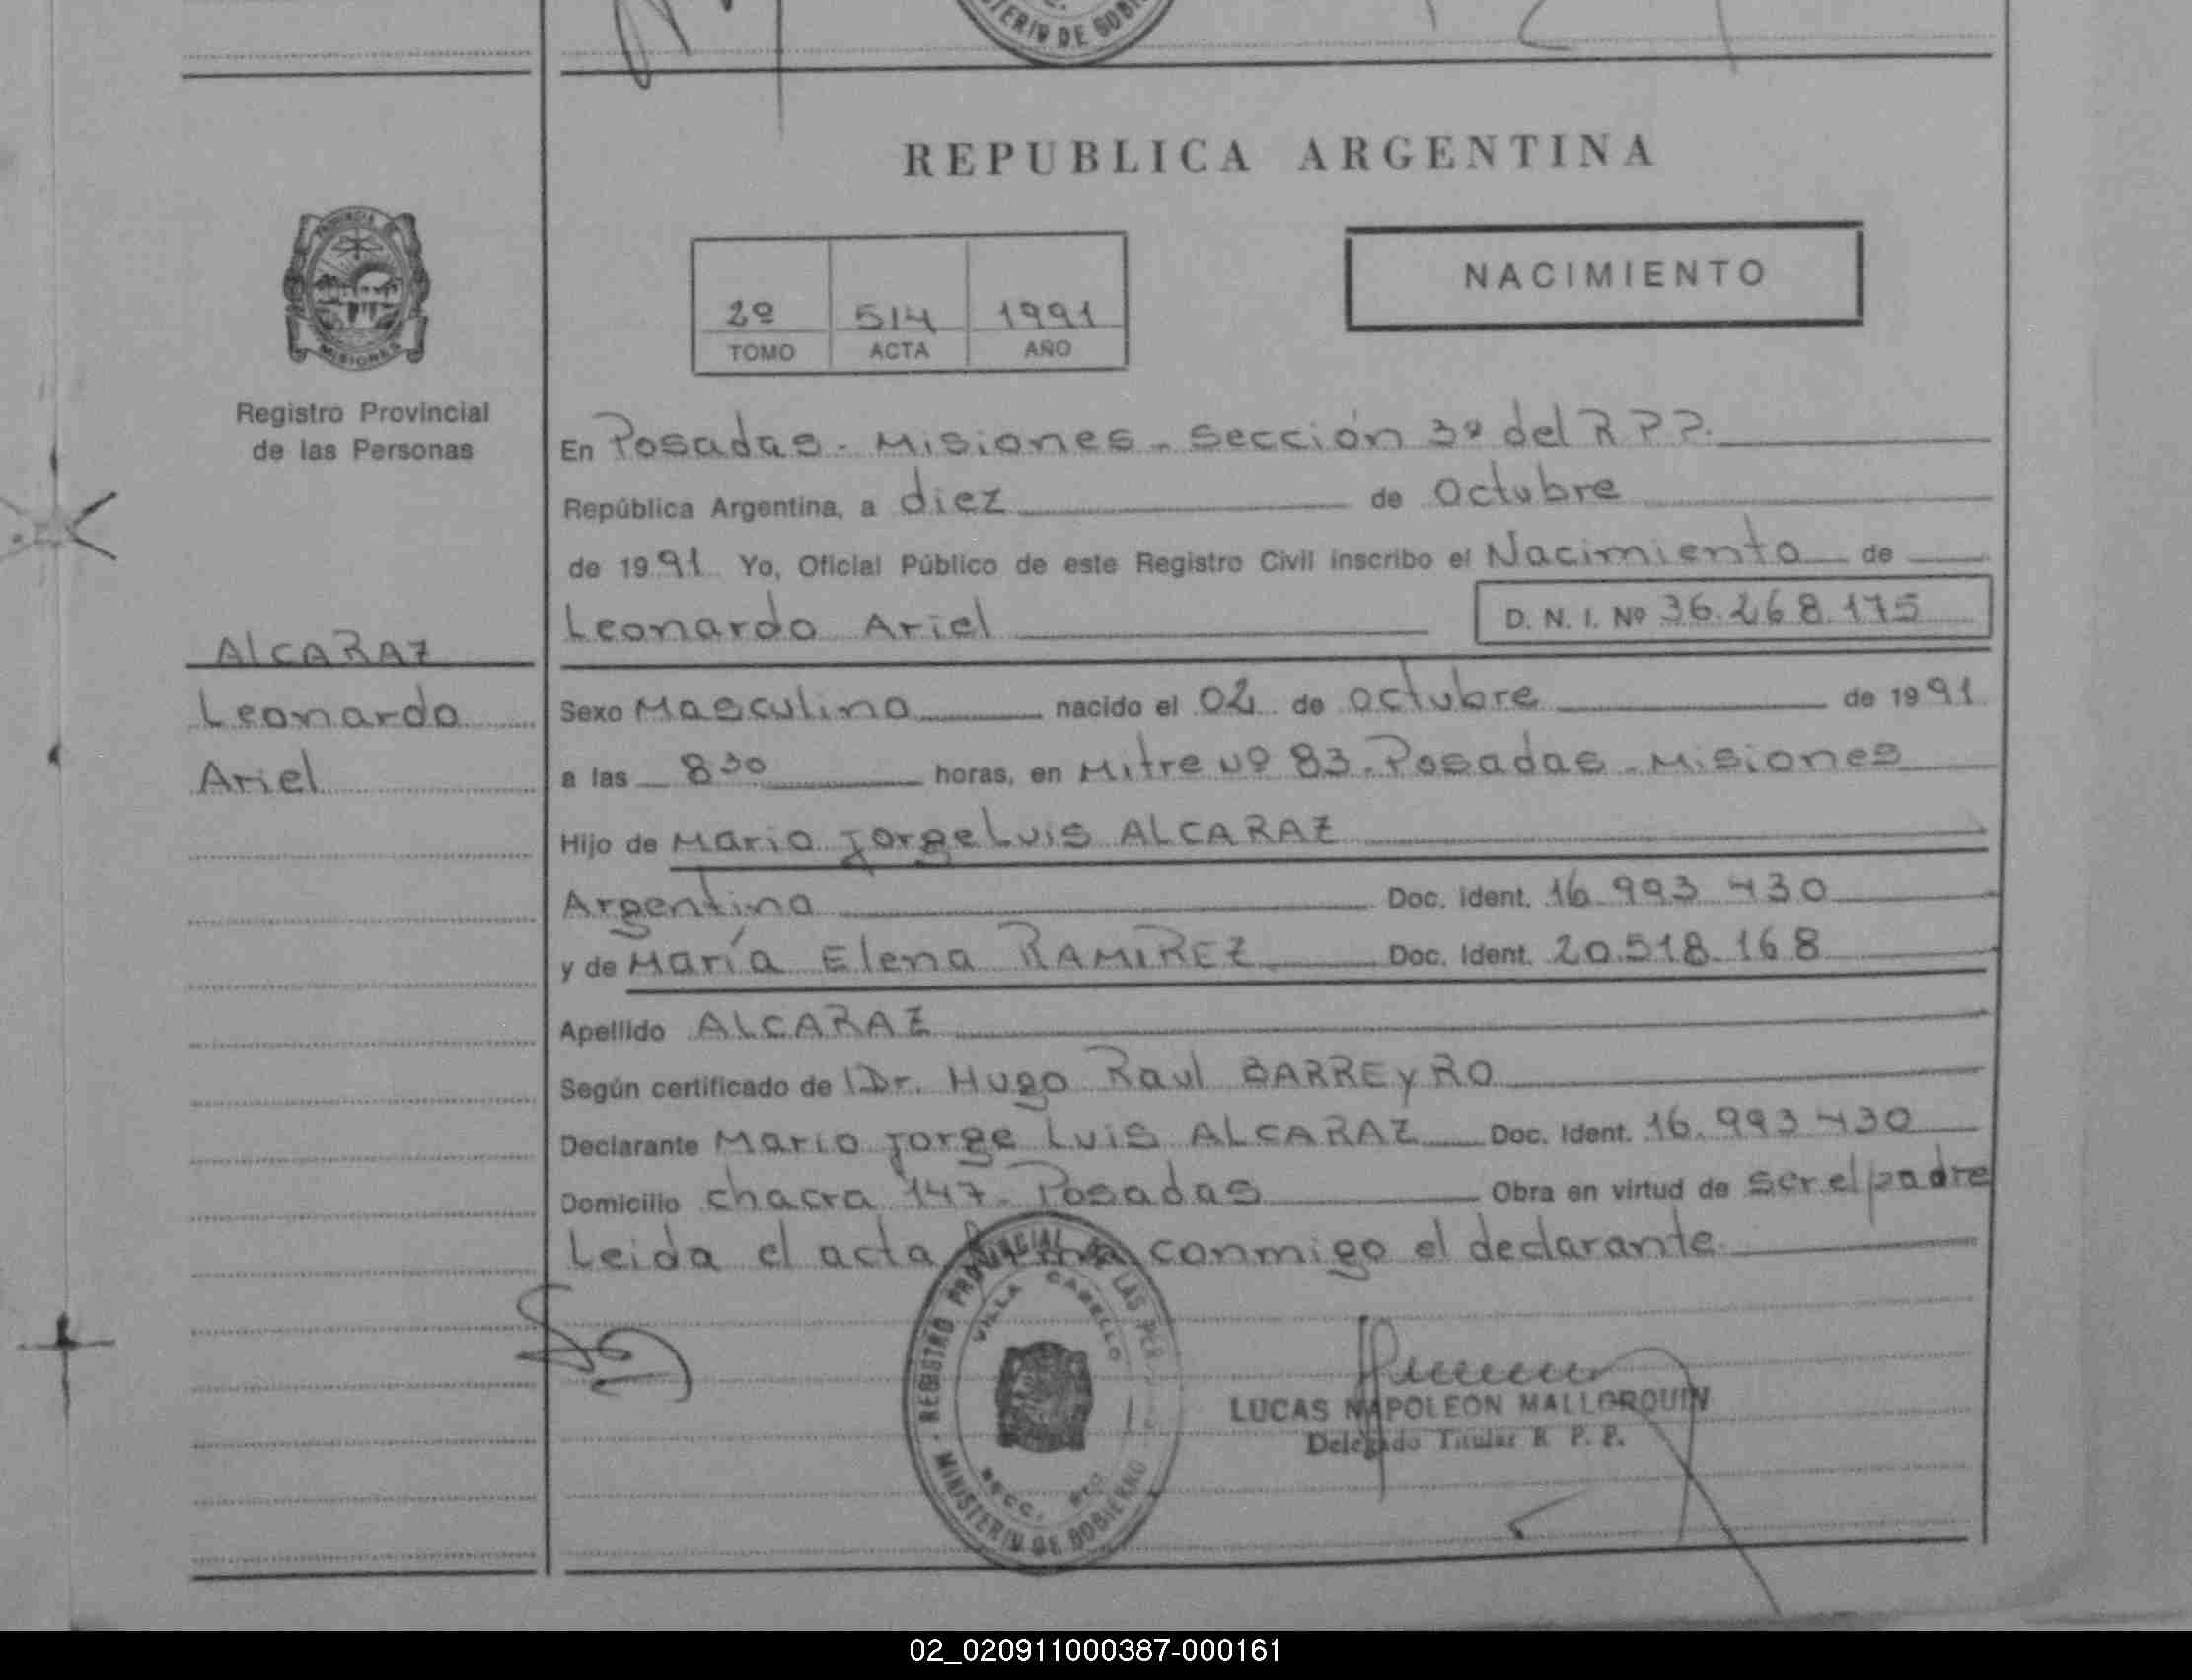 MINISTERIO DE GOBI
REPUBLICA ARGENTINA
PROVINCIA
MISIONES
Registro Provincial
de las Personas
2º 514 1991
TOMO ACTA AÑO
NACIMIENTO
En Posadas - Misiones - Sección 3ª del R P P.
República Argentina, a diez de Octubre
de 1991 Yo, Oficial Público de este Registro Civil inscribo el Nacimiento de
Leonardo Ariel
D. N. I. Nº 36.268.175
ALCARAZ
Leonardo
Ariel
Sexo Masculino nacido el 02 de octubre de 1991
a las 8 30 horas, en Mitre Nº 83. Posadas - Misiones
Hijo de Mario Jorge Luis ALCARAZ
Argentino Doc. Ident. 16.993.430
y de María Elena RAMIREZ Doc. Ident. 20.518.168
Apellido ALCARAZ
Según certificado de Dr. Hugo Raul BARREYRO
Declarante Mario Jorge Luis ALCARAZ Doc. Ident. 16.993.430
Domicilio chacra 147 - Posadas Obra en virtud de ser el padre
Leida el acta firma conmigo el declarante
REGISTRO PROVINCIAL DE LAS PER
VILLA CABELLO
SECC.
MINISTERIO DE GOBIERNO
LUCAS NAPOLEON MALLORQUIN
Delegado Titular R. P. P.
02_020911000387-000161